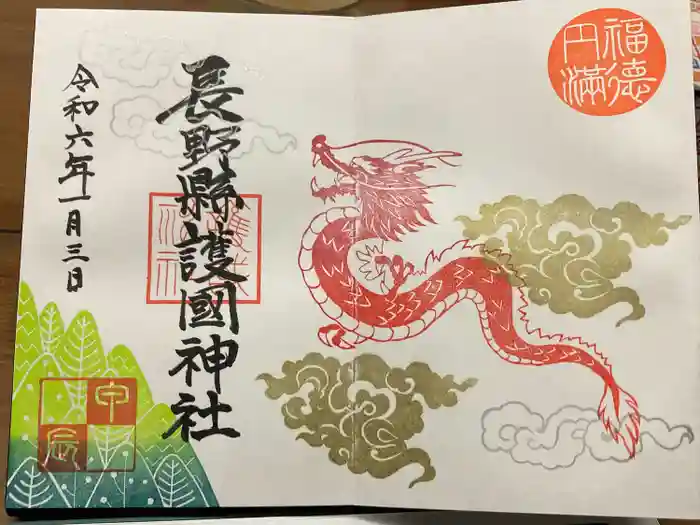 福徳
円満
長野縣護國神社
護國
神社
令和六年一月三日
甲辰